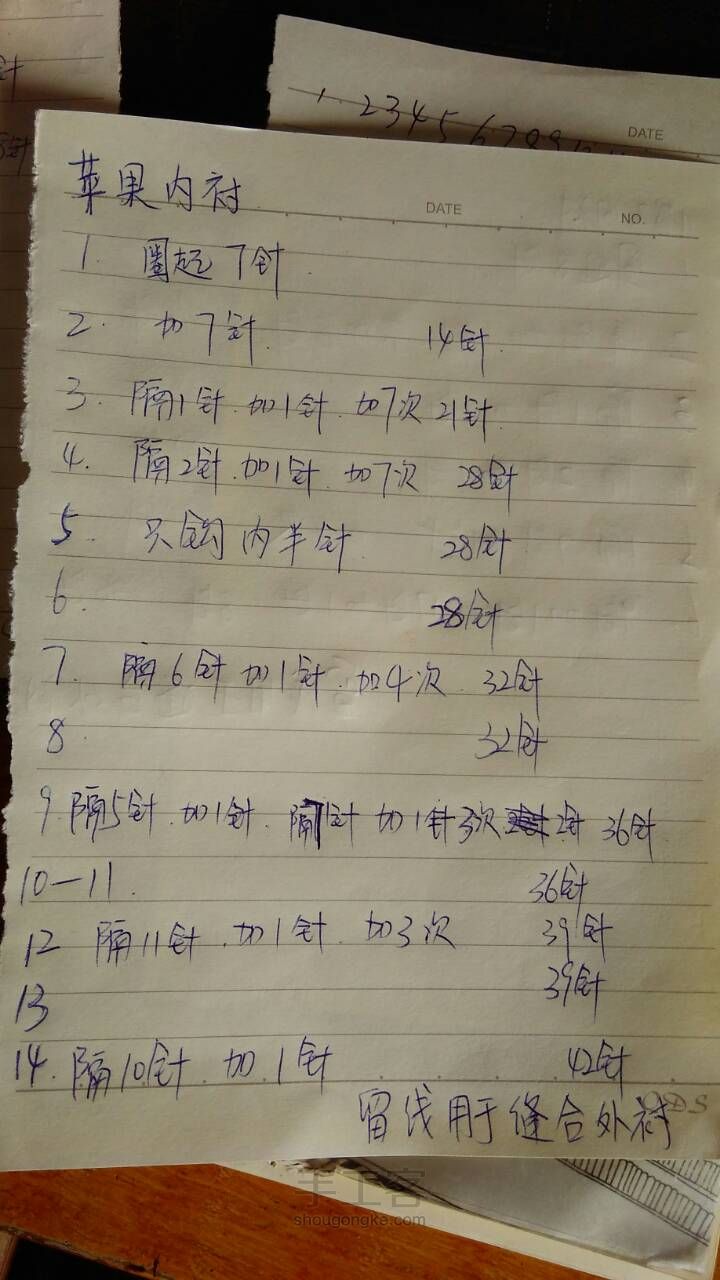 1. 2 3 4 5 6 7 8 9 10
DATE
苹果内衬
DATE
NO.
1. 圈起7针
2. 加7针 14针
3. 隔1针.加1针.加7次 21针
4. 隔2针.加1针.加7次 28针
5. 只钩内半针 28针
6. 28针
7. 隔6针加1针.加4次 32针
8 32针
9.隔5针.加1针.隔7针加1针3次 2针 36针
10—11. 36针
12 隔11针.加1针.加3次 39针
13 39针
14.隔10针.加.1针 42针
留线用于缝合外衬
手工客
shougongke.com